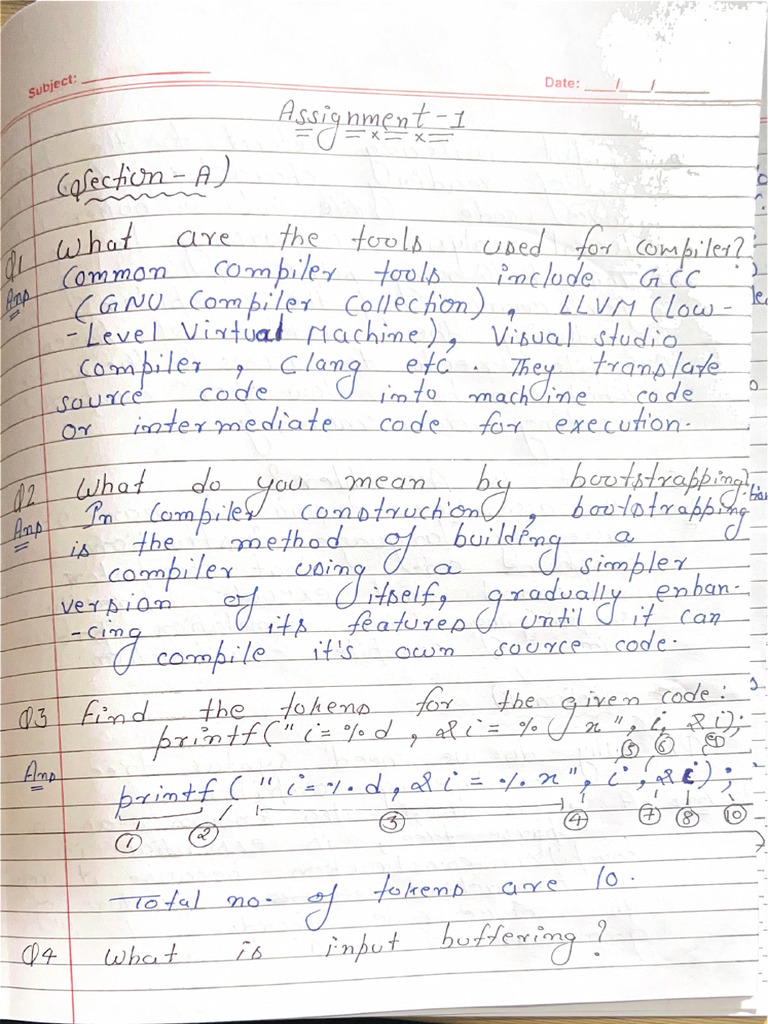 Subject:
Date: __/__/____
Assignment-1
(Section - A)
Q1 What are the tools used for compiler?
Ans Common compiler tools include GCC
(GNU Compiler Collection), LLVM (Low-
-Level Virtual Machine), Visual studio
compiler, Clang etc. They translate
source code into machine code
or intermediate code for execution.
Q2 What do you mean by bootstrapping?
Ans In compiler construction, bootstrapping
is the method of building a
compiler using a simpler
version of itself, gradually enhan-
-cing its features until it can
compile it's own source code.
Q3 Find the tokens for the given code:
printf("i=%d, &i=%x", i, &i);
5 6 9
Ans printf("i=%d, &i=%x", i, &i);
1 2 3 4 7 8 10
Total no. of tokens are 10.
Q4 What is input buffering?